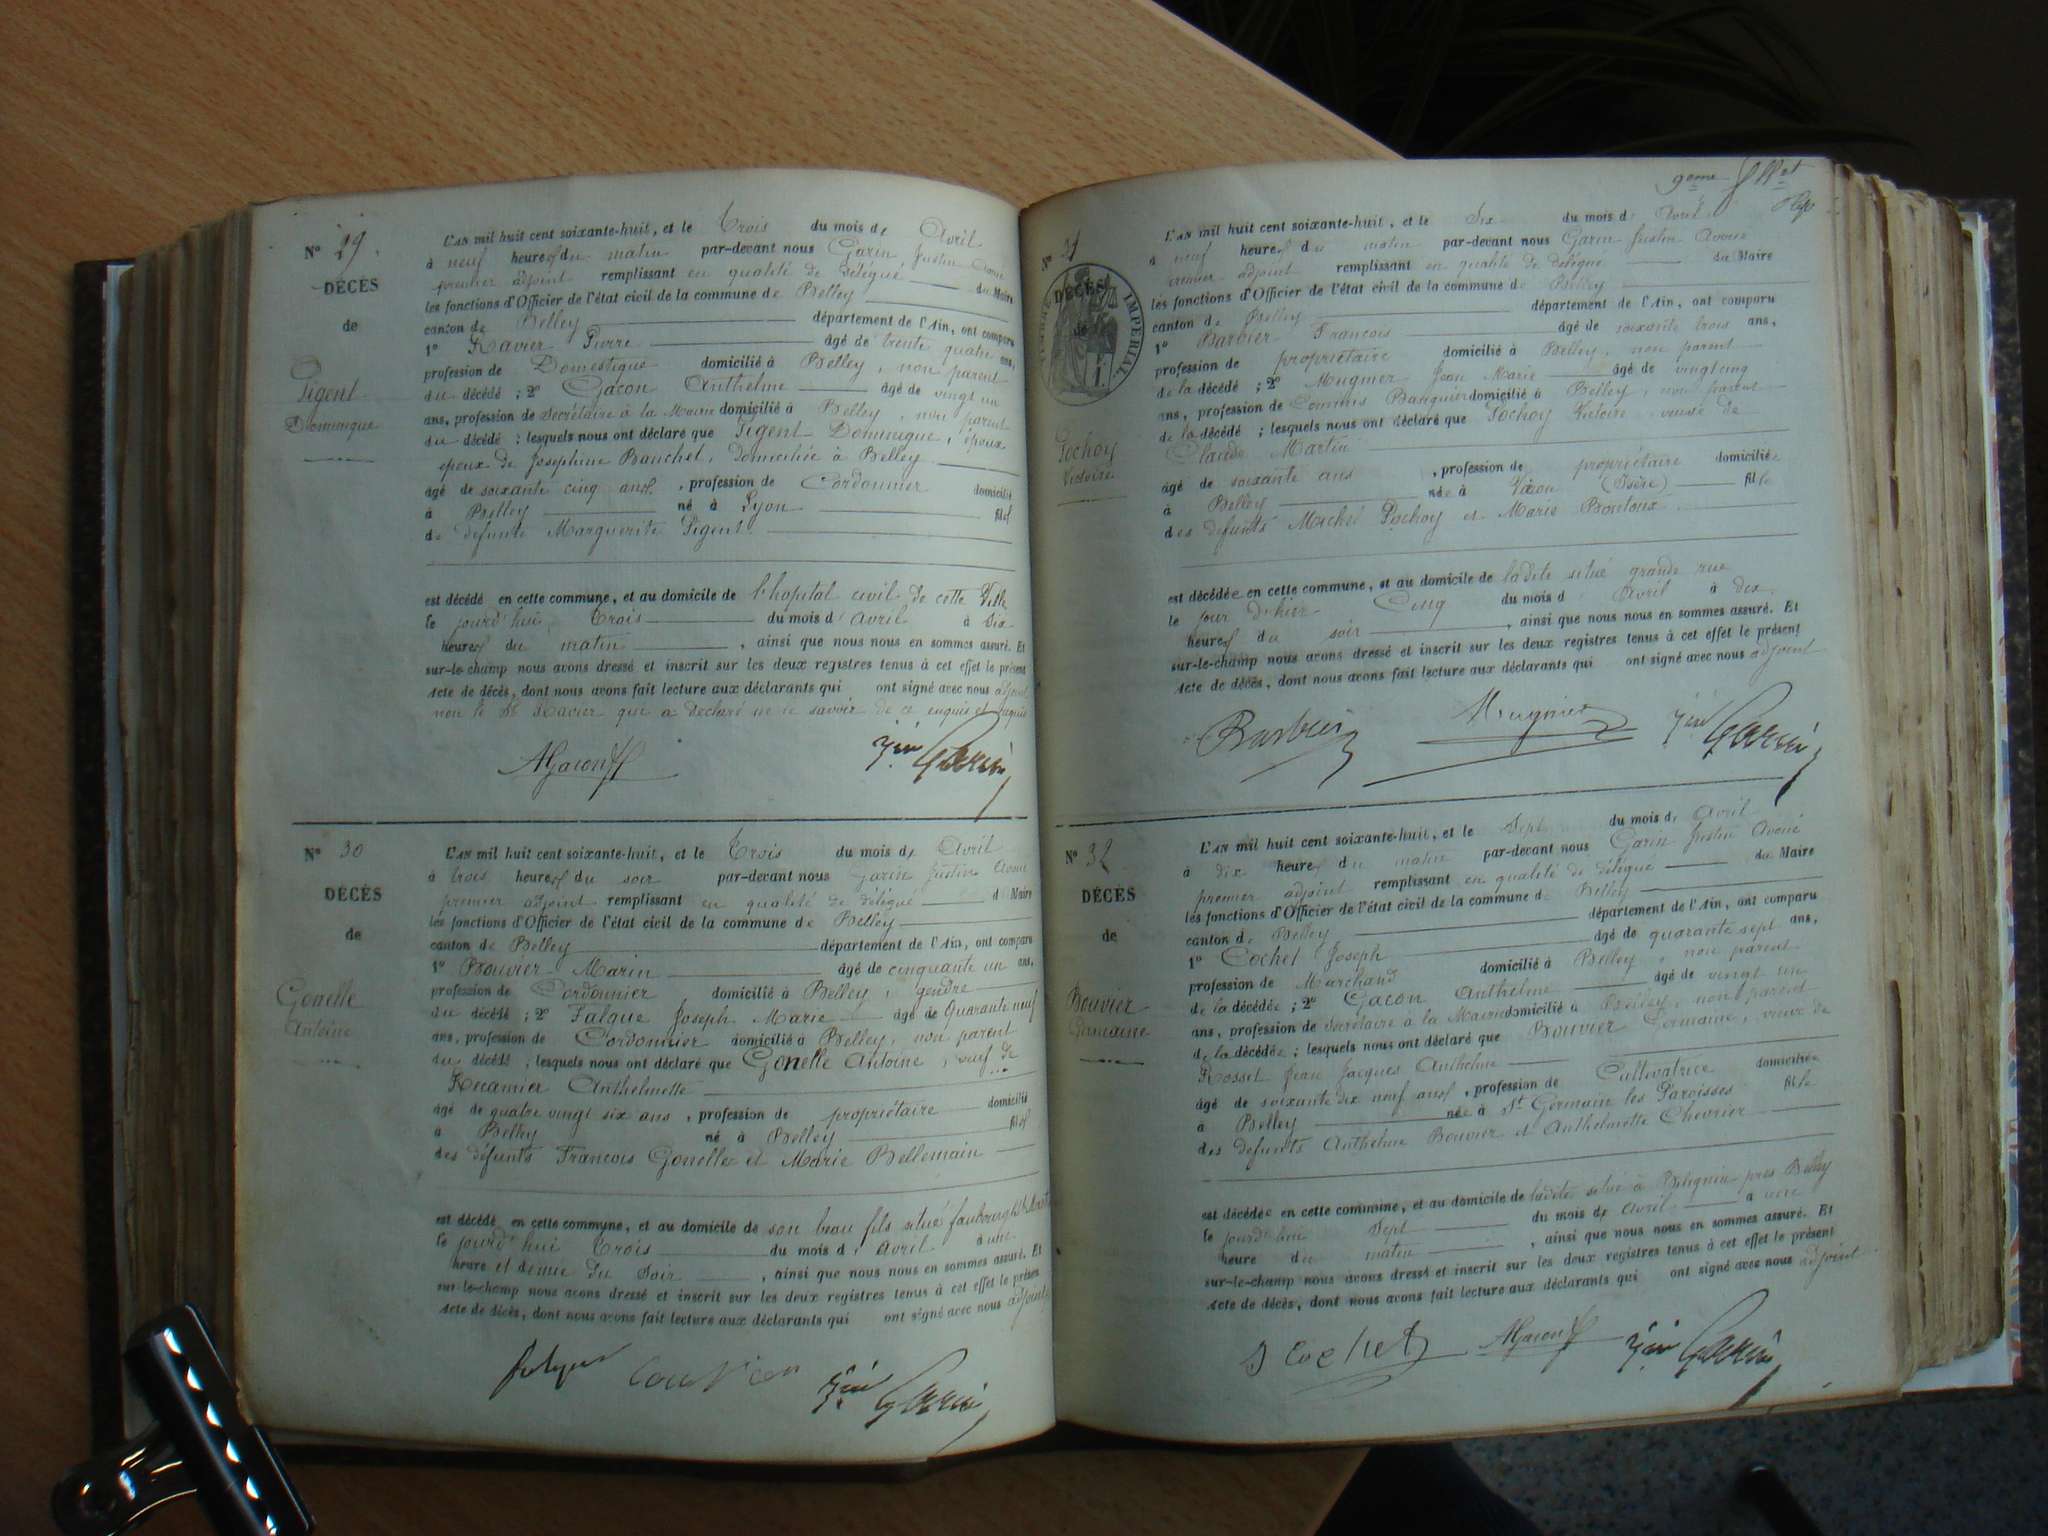 N° 29.
DÉCÈS
de
Pigent
Dominique
L'AN mil huit cent soixante-huit, et le Trois du mois d' Avril
à neuf heures du matin par-devant nous Garin Justin Avoué
premier adjoint remplissant en qualité de délégué du Maire
les fonctions d'Officier de l'état civil de la commune de Belley
canton de Belley département de l'Ain, ont comparu
1° Ravier Pierre âgé de trente quatre ans,
profession de Domestique domicilié à Belley, non parent
du décédé ; 2° Gacon Anthelme âgé de vingt un
ans, profession de Secrétaire à la Mairie domicilié à Belley, non parent
du décédé ; lesquels nous ont déclaré que Pigent Dominique, époux
epoux de Josephine Banchet, domiciliée à Belley
âgé de soixante cinq ans, profession de Cordonnier domicilié
à Belley né à Lyon fils
de defunte Marguerite Pigent
est décédé en cette commune, et au domicile de l'hopital civil de cette Ville
le jourd'hui Trois du mois d'Avril à Six
heures du matin, ainsi que nous nous en sommes assuré. Et
sur-le-champ nous avons dressé et inscrit sur les deux registres tenus à cet effet le présent
acte de décès, dont nous avons fait lecture aux déclarants qui ont signé avec nous adjoint
non le Sr Ravier qui a déclaré ne le savoir de ce enquis et requis
AGacon Jin Garin
N° 30
DÉCÈS
de
Gonelle
Antoine
L'AN mil huit cent soixante-huit, et le Trois du mois d' Avril
à trois heures du soir par-devant nous Garin Justin Avoué
premier adjoint remplissant en qualité de délégué d Maire
les fonctions d'Officier de l'état civil de la commune de Belley
canton de Belley département de l'Ain, ont comparu
1° Bouvier Marin âgé de cinquante un ans,
profession de Cordonnier domicilié à Belley, gendre
du décédé ; 2° Falque Joseph Marie âgé de Quarante neuf
ans, profession de Cordonnier domicilié à Belley, non parent
du décédé ; lesquels nous ont déclaré que Gonelle Antoine, veuf de
Récamier Anthelmette
âgé de quatre vingt six ans, profession de propriétaire domicilié
à Belley né à Belley fils
des défunts François Gonelle et Marie Bellemain
est décédé en cette commune, et au domicile de son beau fils situé faubourg
le jourd'hui Trois du mois d' Avril à une
heure et demie du Soir, ainsi que nous nous en sommes assuré. Et
sur-le-champ nous avons dressé et inscrit sur les deux registres tenus à cet effet le présent
acte de décès, dont nous avons fait lecture aux déclarants qui ont signé avec nous adjoint
falque bouvier Jin Garin
9eme
N° 31
DÉCÈS
de
TIMBRE IMPÉRIAL
Pochoy
Victoire
L'AN mil huit cent soixante-huit, et le Six du mois d' Avril
à neuf heures du matin par-devant nous Garin Justin Avoué
premier adjoint remplissant en qualité de délégué du Maire
les fonctions d'Officier de l'état civil de la commune de Belley
canton de Belley département de l'Ain, ont comparu
1° Barbier François âgé de soixante trois ans,
profession de propriétaire domicilié à Belley, non parent
de la décédé ; 2° Mugnier Jean Marie âgé de vingt cinq
ans, profession de Commis Banquier domicilié à Belley, non parent
de la décédé ; lesquels nous ont déclaré que Pochoy Victoire, veuve de
Claude Martin
âgé de soixante ans, profession de propriétaire domiciliée
à Belley née à (Isère) fille
des defunts Michel Pochoy et Marie Bontoux
est décédée en cette commune, et au domicile de ladite situé grande rue
le jour d'hier Cinq du mois d' Avril à dix
heures du soir, ainsi que nous nous en sommes assuré. Et
sur-le-champ nous avons dressé et inscrit sur les deux registres tenus à cet effet le présent
acte de décès, dont nous avons fait lecture aux déclarants qui ont signé avec nous adjoint
Barbier Mugnier Jin Garin
N° 32
DÉCÈS
de
Bouvier
Germaine
L'AN mil huit cent soixante-huit, et le Sept du mois d' Avril
à dix heures du matin par-devant nous Garin Justin Avoué
premier adjoint remplissant en qualité de délégué du Maire
les fonctions d'Officier de l'état civil de la commune de Belley
canton de Belley département de l'Ain, ont comparu
1° Cochet Joseph âgé de quarante sept ans,
profession de Marchand domicilié à Belley, non parent
de la décédée ; 2° Gacon Anthelme âgé de vingt un
ans, profession de Secrétaire à la Mairie domicilié à Belley, non parent
de la décédée ; lesquels nous ont déclaré que Bouvier Germaine, veuve de
Rosset Jean Jacques Anthelme
âgé de soixante dix neuf ans, profession de Cultivatrice domiciliée
à Belley née à St Germain les Paroisses fille
des defunts Anthelme Bouvier et Anthelmette Chevrier
est décédée en cette commune, et au domicile de ladite situé à Billignin près Belley
le jourd'hui Sept du mois d' Avril à une
heure du matin, ainsi que nous nous en sommes assuré. Et
sur-le-champ nous avons dressé et inscrit sur les deux registres tenus à cet effet le présent
acte de décès, dont nous avons fait lecture aux déclarants qui ont signé avec nous adjoint
J Cochet AGacon Jin Garin